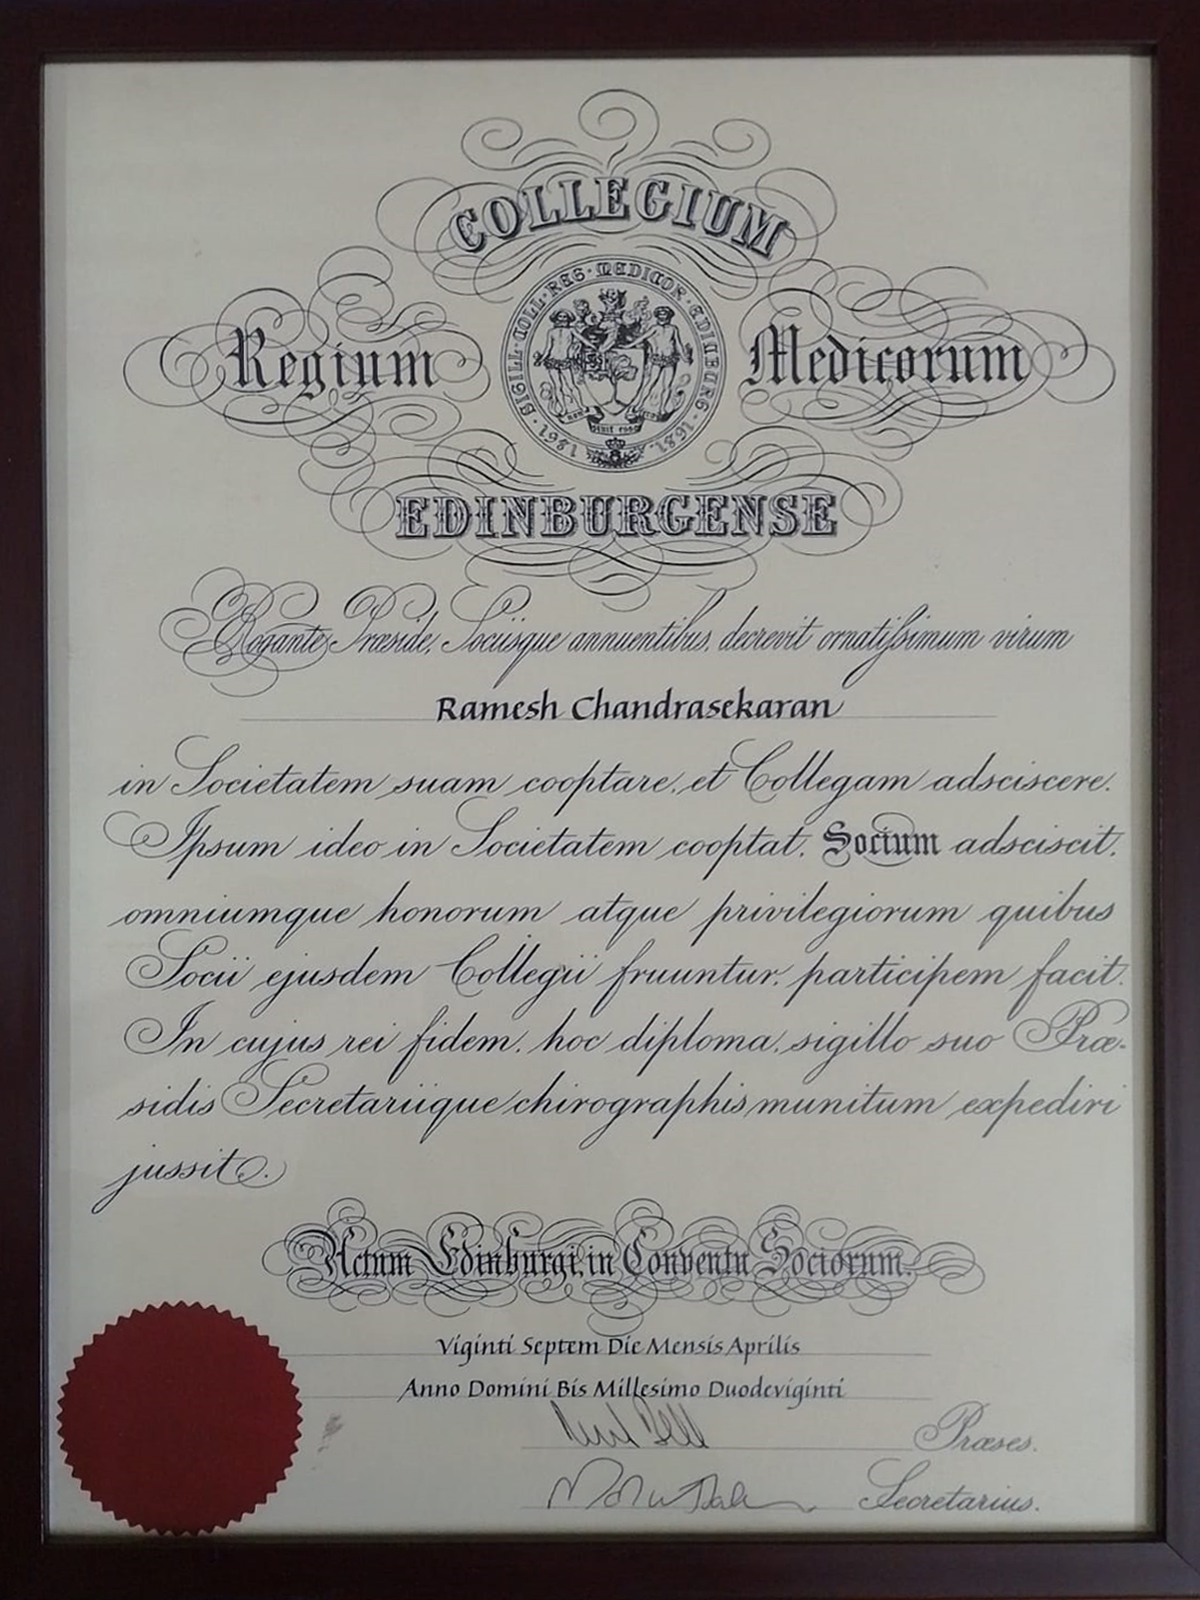 COLLEGIUM
Regium Medicorum
SIGILL·COLL·REG·MEDICOR·EDINBURG·1681·
EDINBURGENSE
Rogante Præside, Sociisque annuentibus, decrevit ornatissimum virum
Ramesh Chandrasekaran
in Societatem suam cooptare, et Collegam adsciscere.
Ipsum ideo in Societatem cooptat, Socium adsciscit,
omniumque honorum atque privilegiorum quibus
Socii ejusdem Collegii fruuntur, participem facit.
In cujus rei fidem, hoc diploma, sigillo suo Præ-
sidis Secretariique chirographis munitum expediri
jussit.
Actum Edinburgi, in Conventu Sociorum.
Viginti Septem Die Mensis Aprilis
Anno Domini Bis Millesimo Duodeviginti
Præses.
Secretarius.